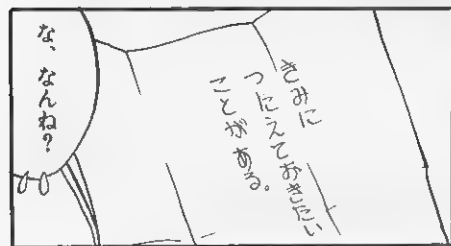 きみに
つたえておきたい
ことがある。
な、なんね？